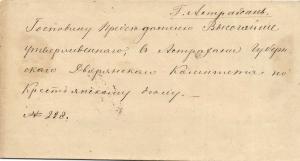 Г. Астрахань.
Господину Председателю Высочайше
утвержденного, въ Астрахани Губерн-
скаго Дворянскаго Комитета по
Крестьянскому делу.
№ 228.